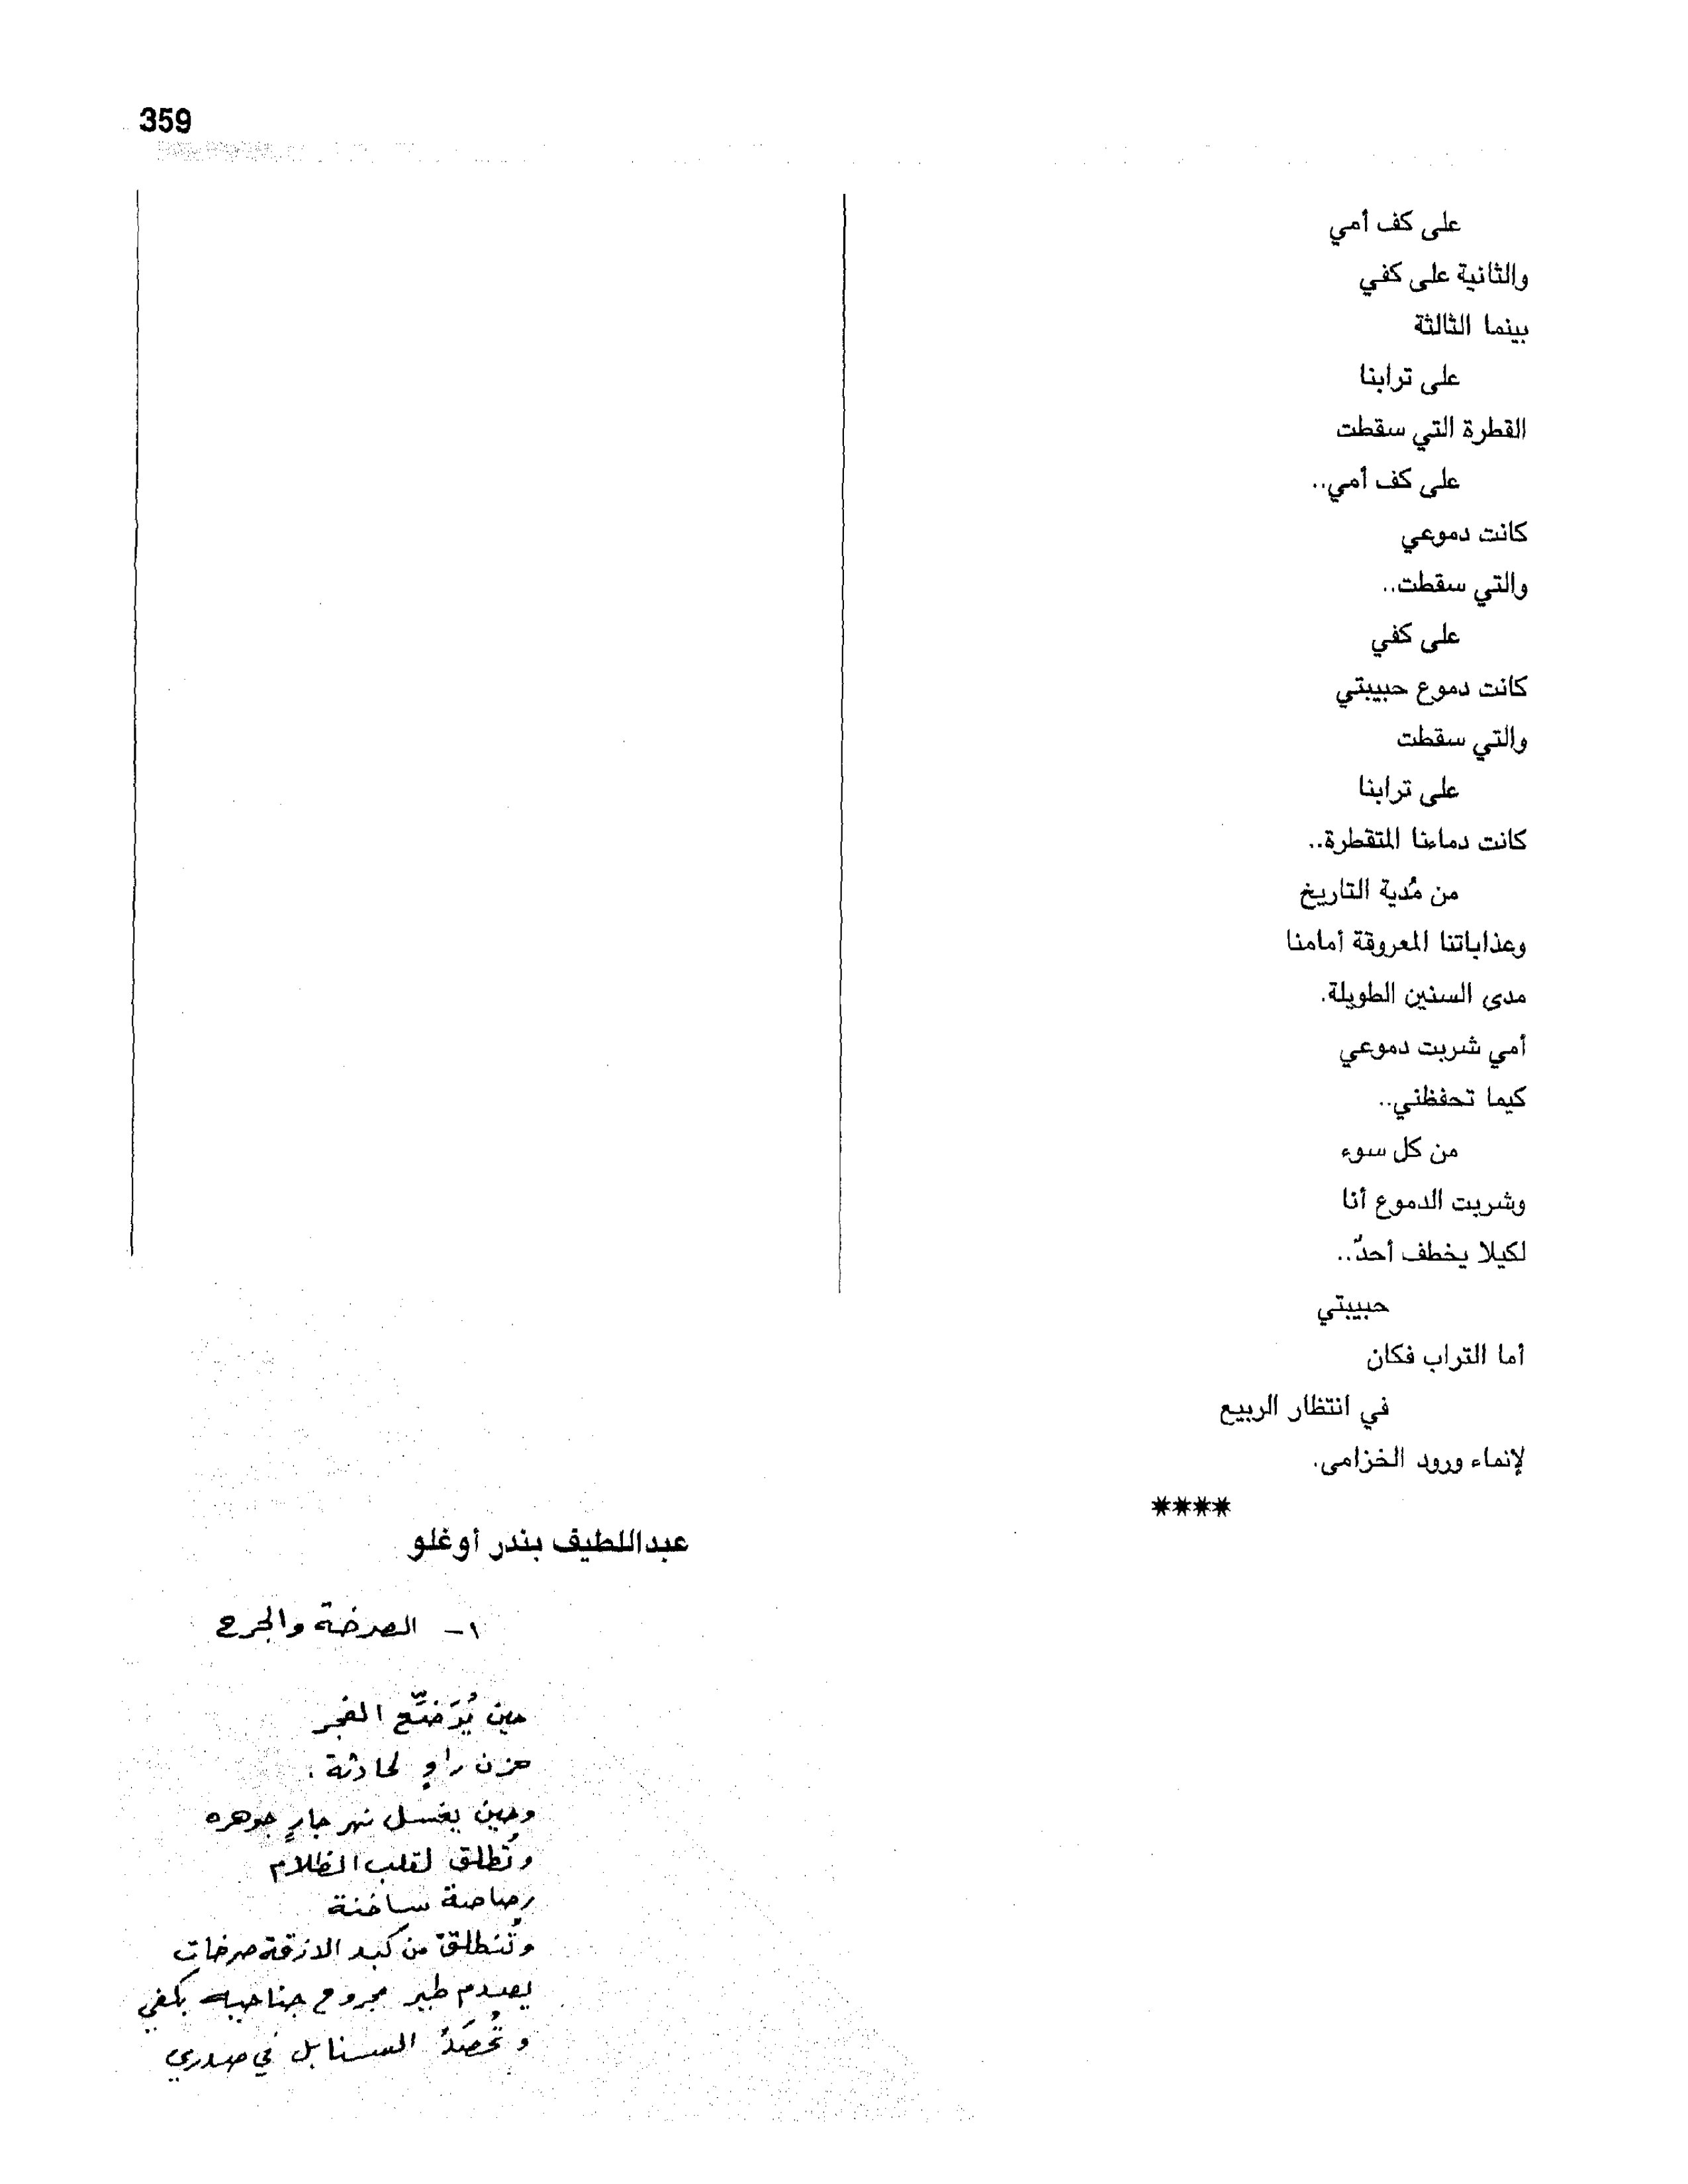 359
على كف أمي
والثانية على كفي
بينما الثالثة
على ترابنا
القطرة التي سقطت
على كف أمي..
كانت دموعي
والتي سقطت..
على كفي
كانت دموع حبيبتي
والتي سقطت
على ترابنا
كانت دماءنا المتقطرة..
من مُدية التاريخ
وعذاباتنا المعروقة أمامنا
مدى السنين الطويلة.
أمي شربت دموعي
كيما تحفظني..
من كل سوء
وشربت الدموع أنا
لكيلا يخطف أحدٌ..
حبيبتي
أما التراب فكان
في انتظار الربيع
لإنماء ورود الخزامى.
****
عبداللطيف بندر أوغلو
١- الصرخة والجرح
حين يُرَضَّع الفجر
حزن راوٍ لحادثة .
وحين يغسل نهر جارٍ جوهره
وتُطلق لقلب الظلام
رصاصة ساخنة
وتُنطلق من كبد الازقة صرخات
يصدم طير مجروح جناحيه بكفي
وتُحصَدُ السنابل في صدري